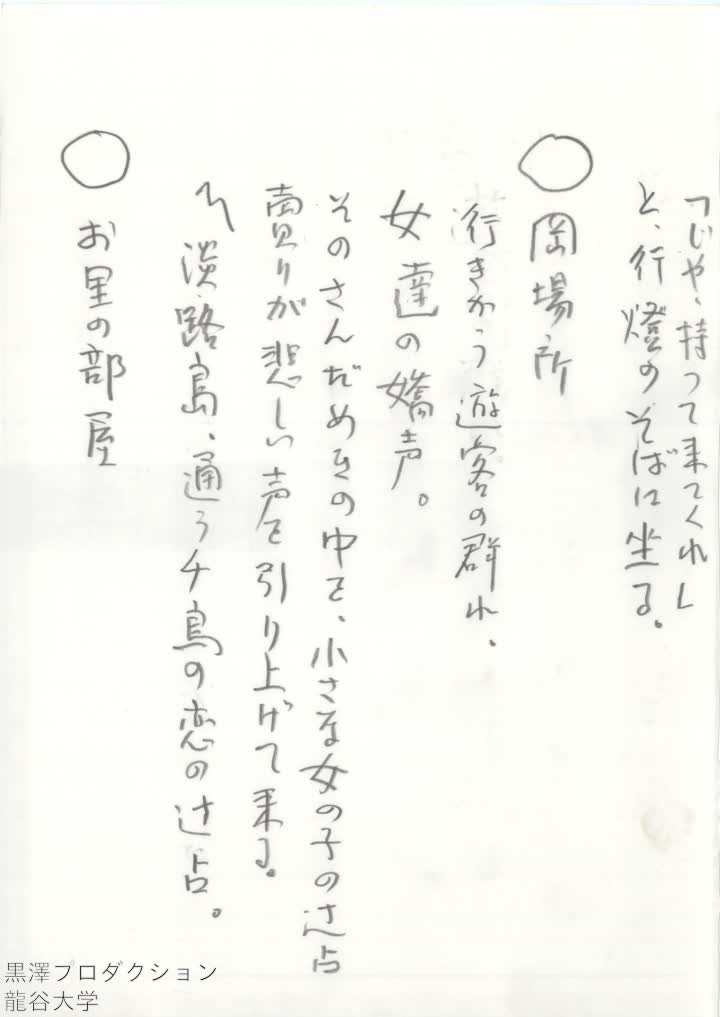 「じゃ、持って来てくれ」
と、行燈のそばに坐る。
○ 岡場所
行きかう遊客の群れ、
女達の嬌声。
そのさんだめきの中を、小さな女の子の辻占
売りが悲しい声を引り上げて来る。
〽淡路島、通うチ鳥の恋の辻占。
○ お里の部屋
黒澤プロダクション
龍谷大学